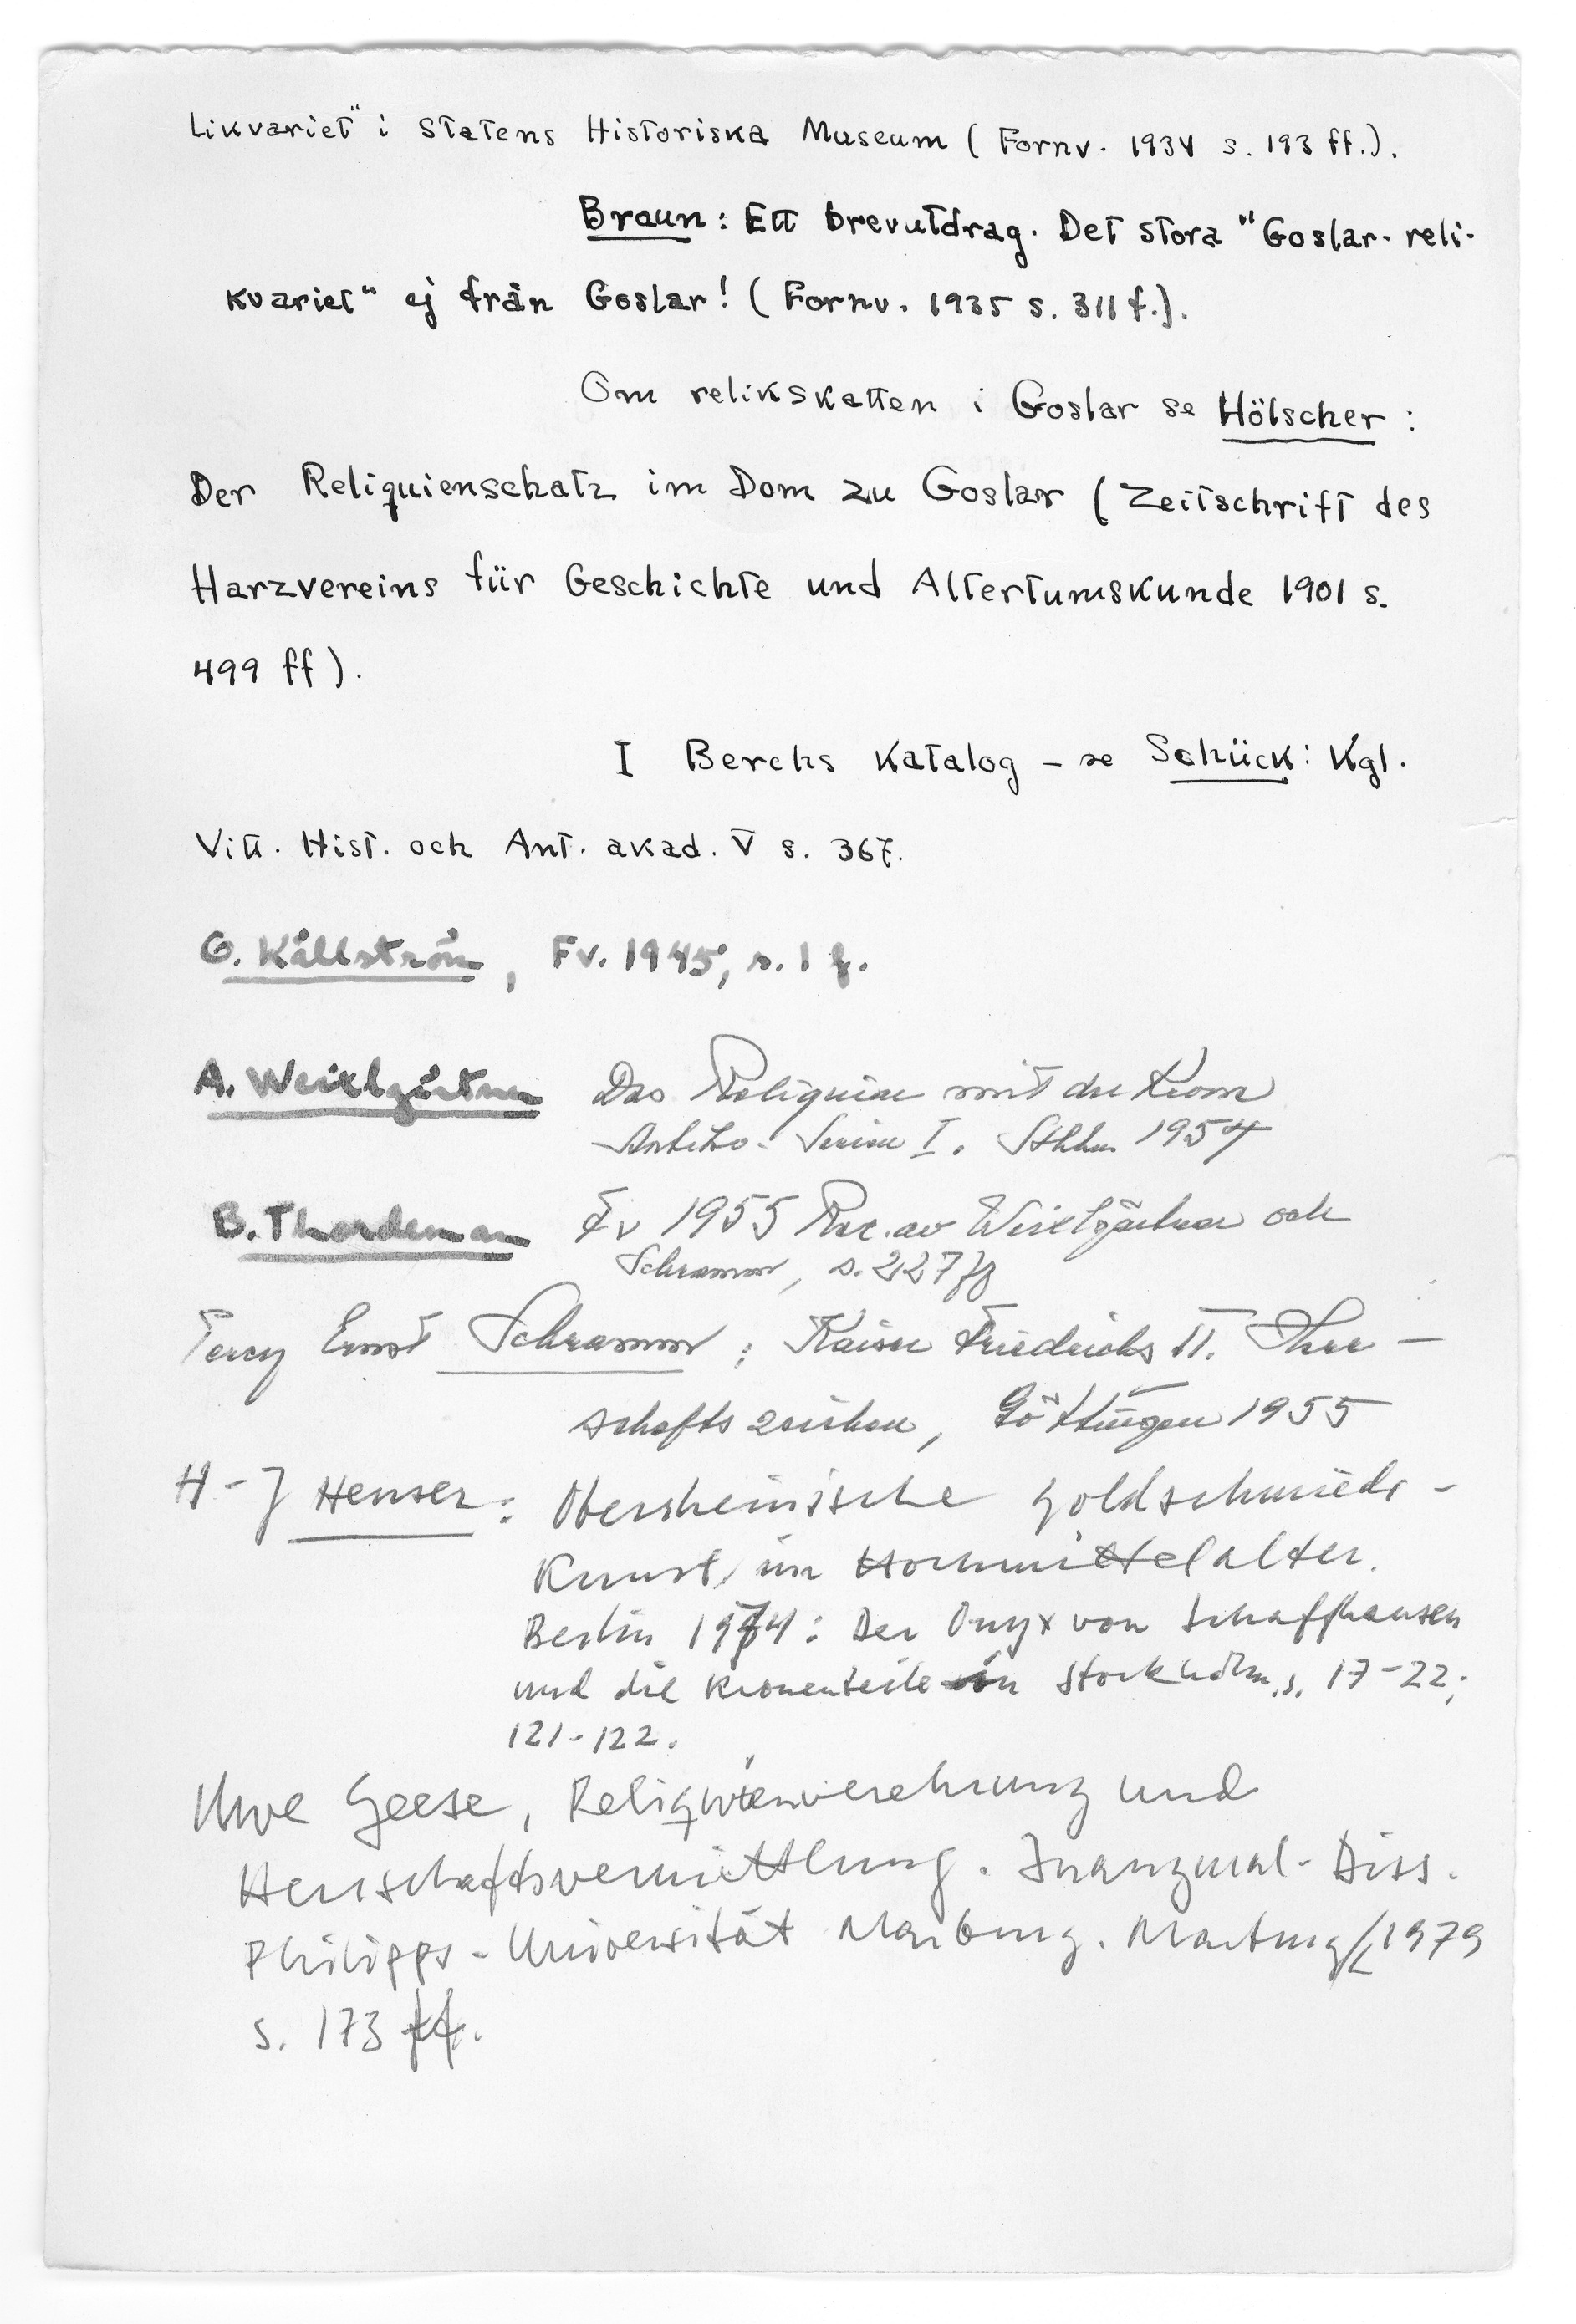 likvariet" i Statens Historiska Museum (Fornv. 1934 s. 193 ff.).
Braun: Ett brevutdrag. Det stora "Goslar-reli-
kvariet" ej från Goslar! (Fornv. 1935 s. 311 f.).
Om relikskatten i Goslar se Hölscher:
Der Reliquienschatz im Dom zu Goslar (Zeitschrift des
Harzvereins für Geschichte und Altertumskunde 1901 s.
499 ff).
I Berchs Katalog - se Schück: Kgl.
Vitt. Hist. och Ant. akad. V s. 367.
O. Källström, Fv. 1945, s. 1 f.
A. Weixlgärtner Das Reliquiar mit der Krone
Antikv. Serien I. Sthlm 1954
B. Thordeman Fv 1955 Rec. av Weixlgärtner och
Schramm, s. 227 ff
Percy Ernst Schramm; Kaiser Friedrichs II. Herr-
schaftszeichen, Göttingen 1955
H-J Heuser: Oberrheinische Goldschmiede-
Kunst im Hochmittelalter.
Berlin 1974: Der Onyx von Schaffhausen
und die Kronenteile in Stockholm, s. 17-22;
121-122.
Uwe Geese, Reliquienverehrung und
Herrschaftsvermittlung. Inaugural-Diss.
Philipps-Universität Marburg. Marburg/L 1979
s. 173 ff.